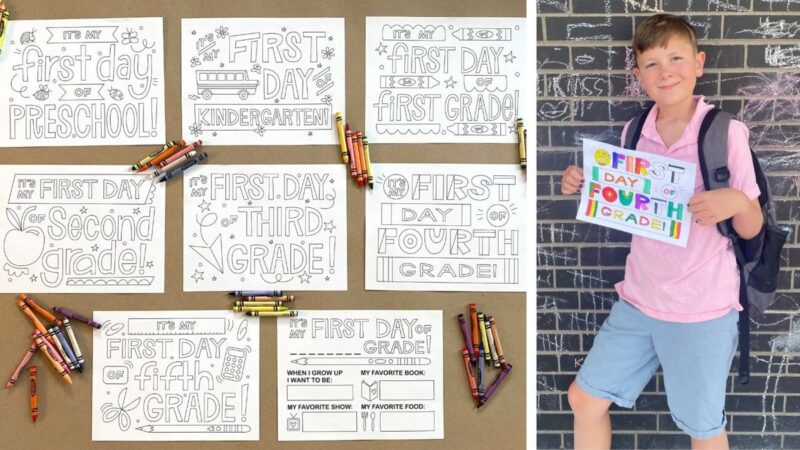 IT'S MY
first day
of
PRESCHOOL!
IT'S MY
FIRST
DAY OF
KINDERGARTEN!
IT'S MY
first DAY
OF
first GRADE!
IT'S MY
FIRST DAY
OF Second
grade!
IT'S MY
FIRST DAY
OF THIRD
GRADE!
IT'S MY FIRST
DAY OF
FOURTH
GRADE!
IT'S MY
FIRST DAY
OF fifth
GRADE!
IT'S MY FIRST DAY OF
GRADE!
WHEN I GROW UP
I WANT TO BE:
MY FAVORITE BOOK:
MY FAVORITE SHOW:
MY FAVORITE FOOD:
FIRST
DAY OF
FOURTH
GRADE!